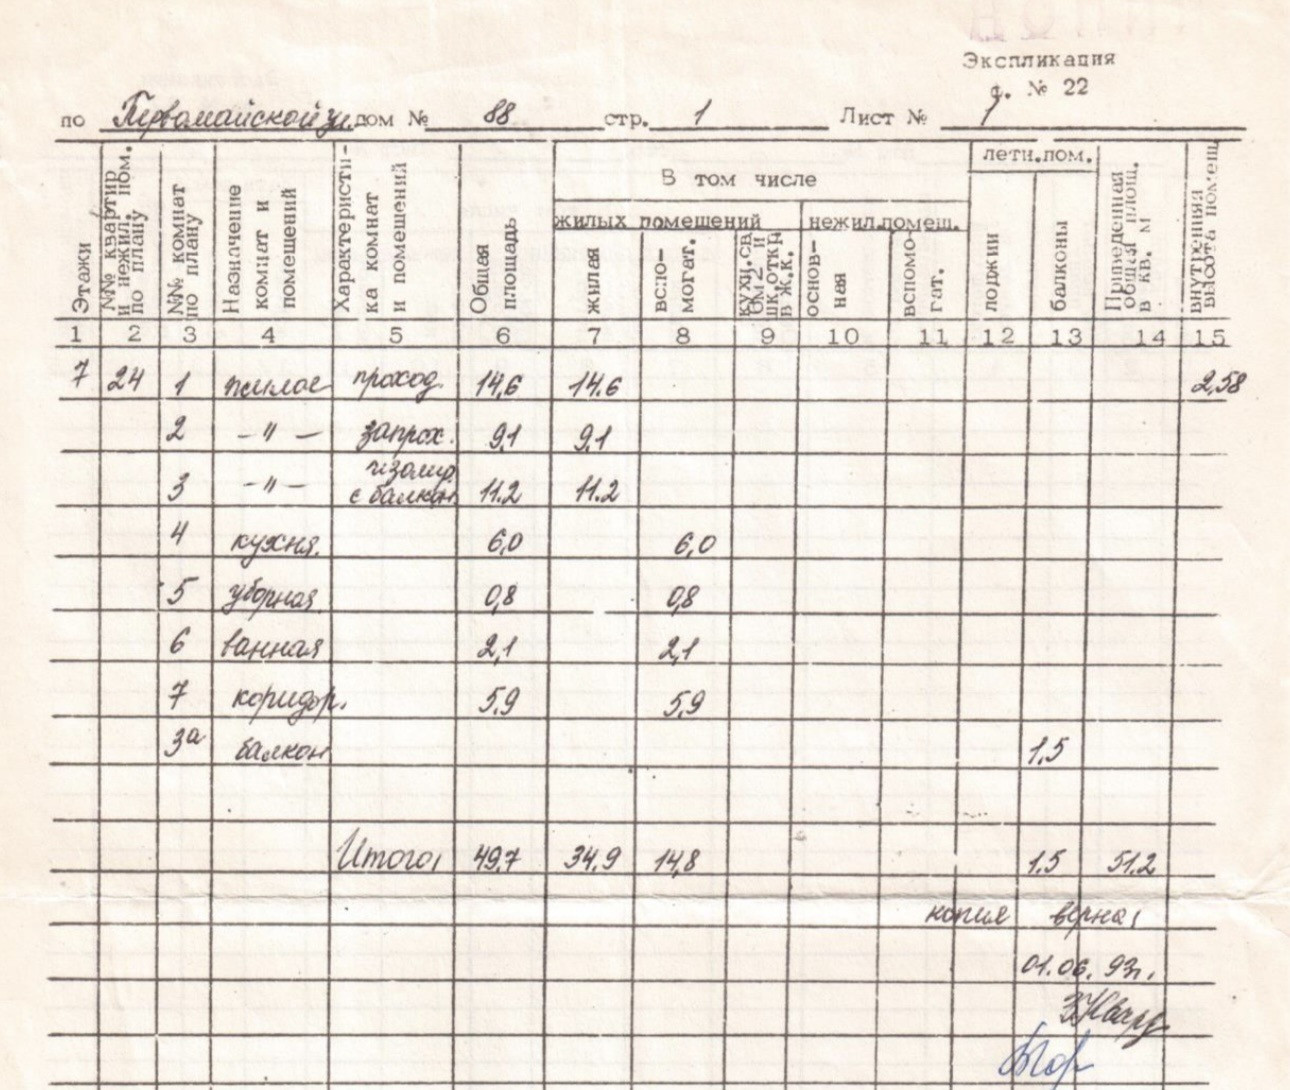 Экспликация
ф. № 22
по Первомайской ул. дом № 88 стр. 1 Лист № 1
Этажи
№№ квартир и нежил. пом. по плану
№№ комнат по плану
Назначение комнат и помещений
Характеристика комнат и помещений
Общая площадь
В том числе
жилых помещений
жилая
вспо-
могат.
нежил.помещ.
основ-
ная
вспомо-
гат.
летн.пом.
лоджии
балконы
Приведенная общая площ. в кв. м
внутренняя высота помещ.
1 2 3 4 5 6 7 8 9 10 11 12 13 14 15
7 24 1 жилое проход. 14,6 14.6 2,58
2 —〃— запрох. 9.1 9.1
3 —〃— изолир. с балкон. 11.2 11.2
4 кухня. 6,0 6,0
5 уборная. 0,8 0,8
6 ванная 2,1 2,1
7 коридор. 5.9 5.9
3а балкон 1.5
Итого: 49.7 34.9 14,8 1.5 51.2
копия верна:
01.06. 93г.